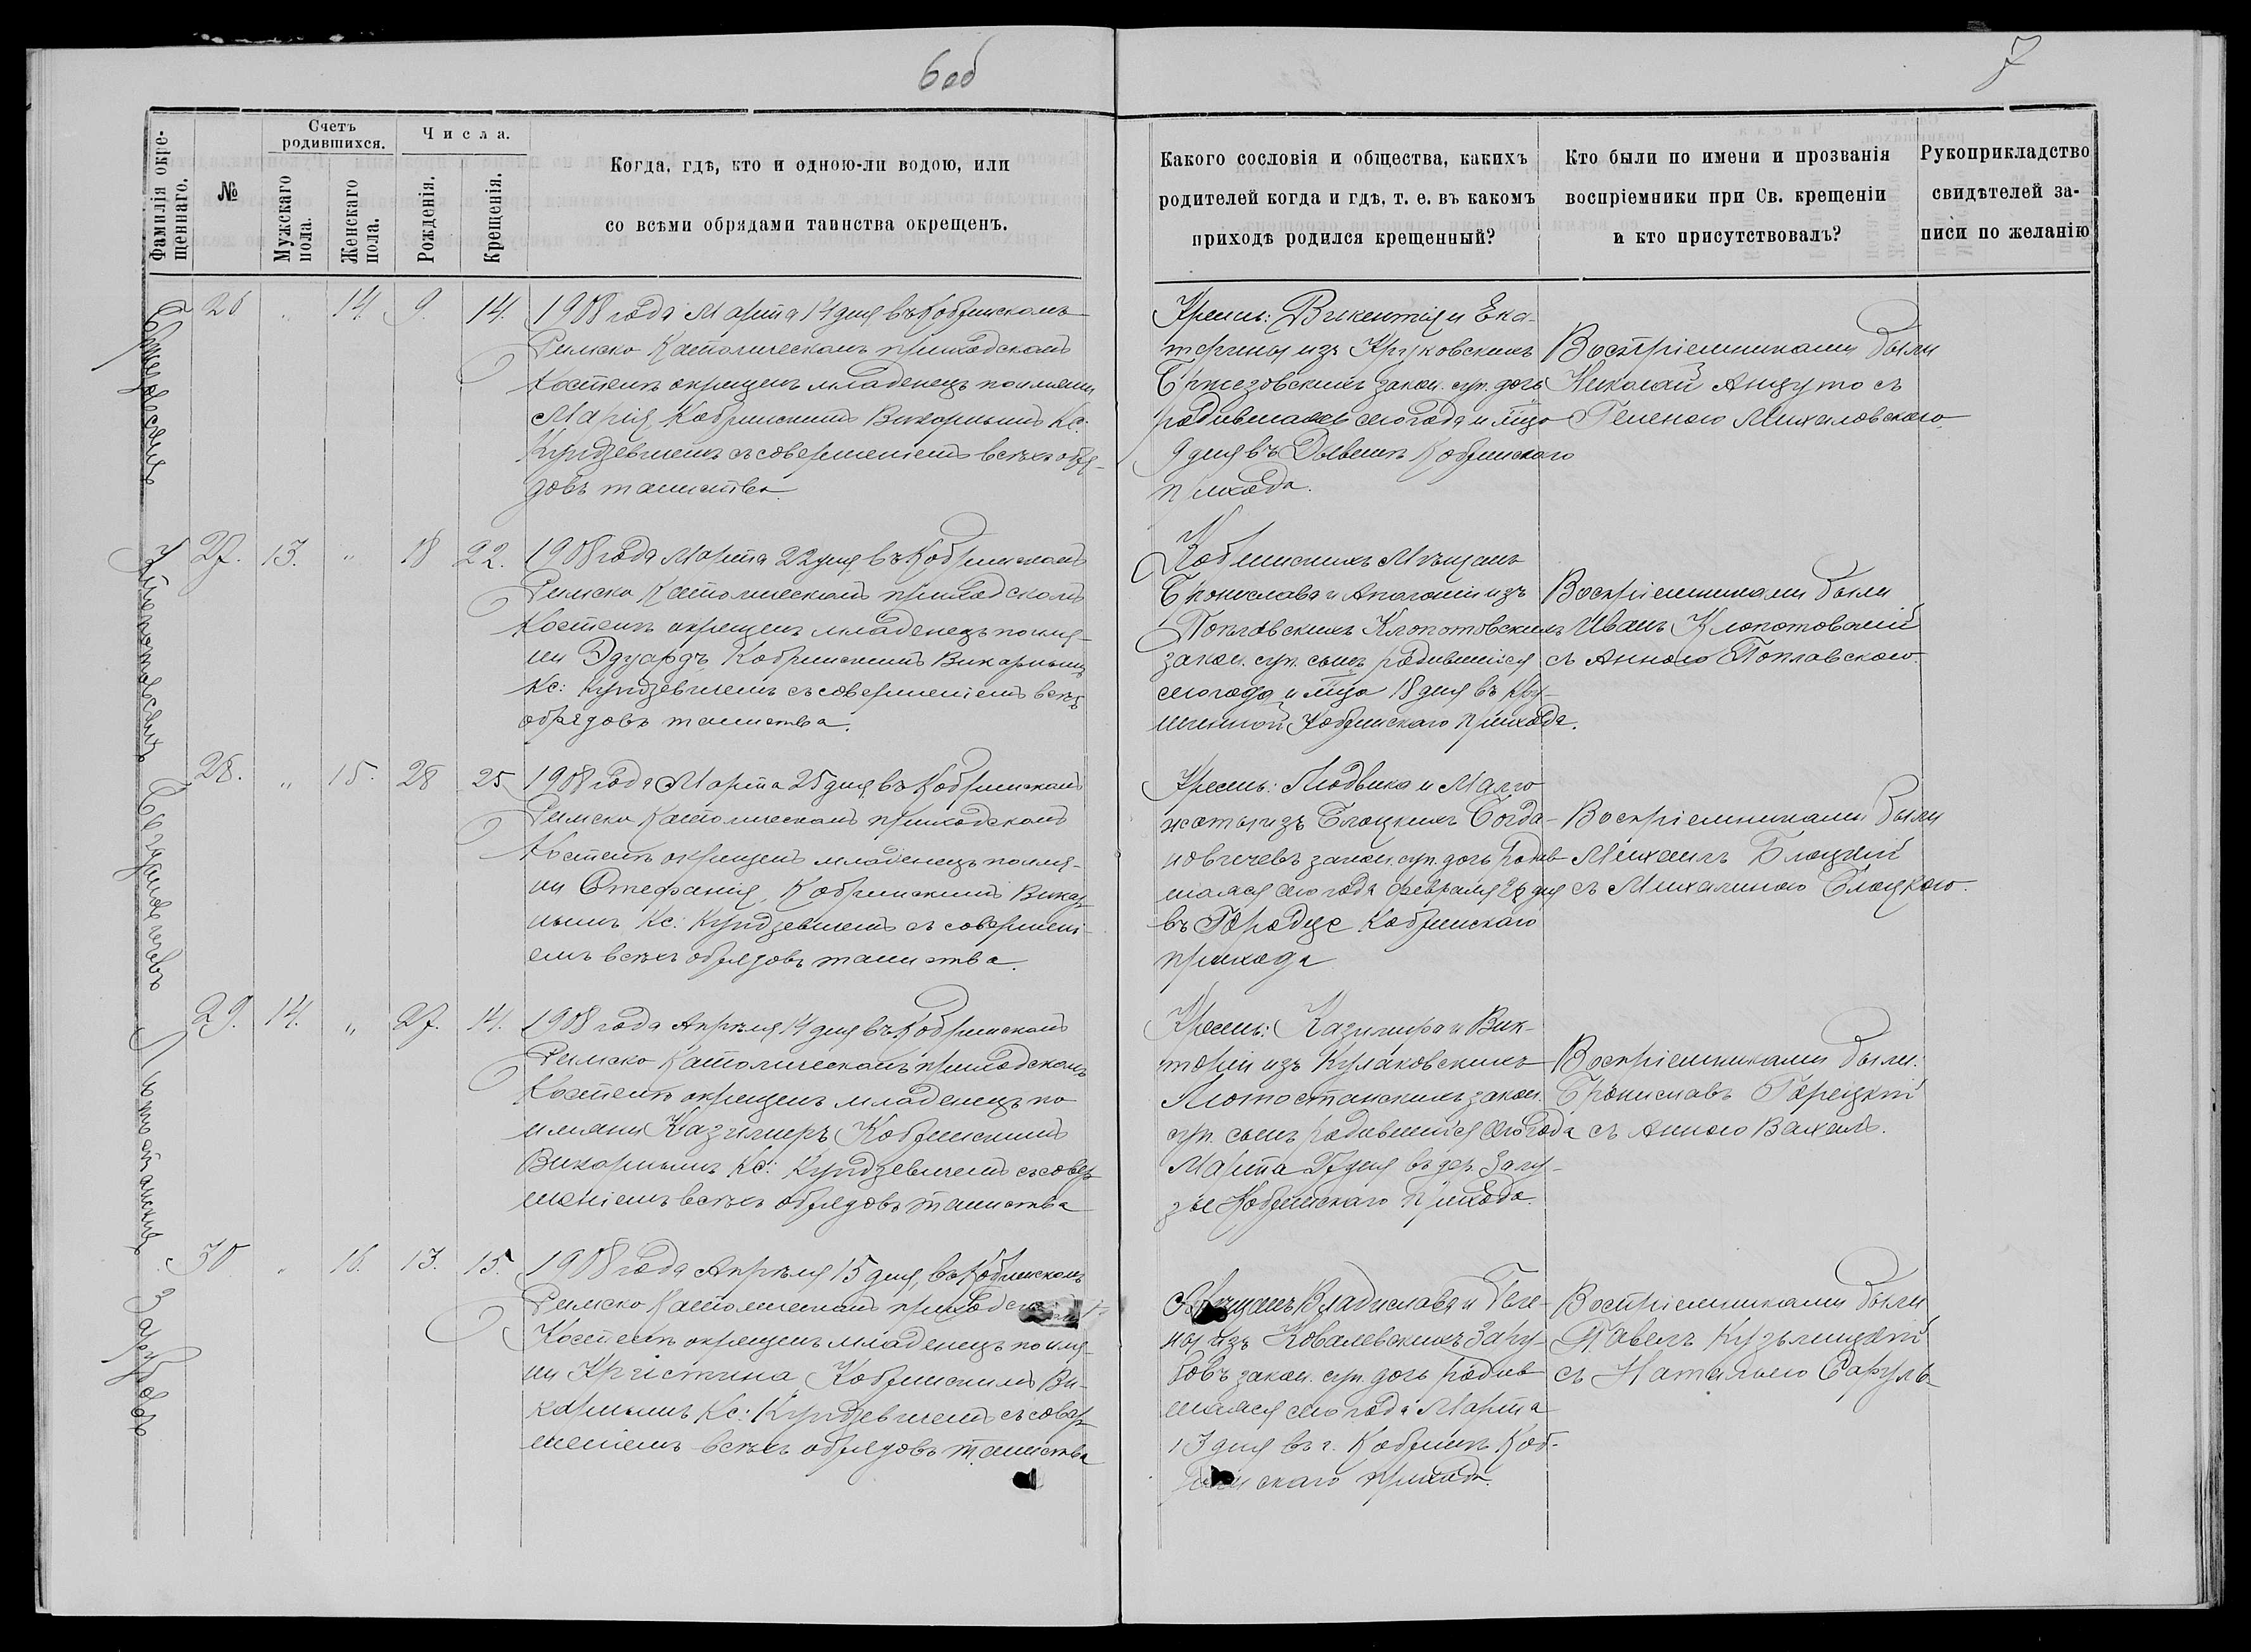 6 об
7
Фамилія окре-
щеннаго.
№
Счетъ
родившихся.
Мужскаго
пола.
Женскаго
пола.
Числа.
Рожденія.
Крещенія.
Когда, гдѣ, кто и одною-ли водою, или
со всѣми обрядами таинства окрещенъ.
Какого сословія и общества, какихъ
родителей когда и гдѣ, т. е. въ какомъ
приходѣ родился крещенный?
Кто были по имени и прозванія
воспріемники при Св. крещеніи
и кто присутствовалъ?
Рукоприкладство
свидѣтелей за-
писи по желанію
26 " 14. 9. 14.
1908 года Марта 14 дня въ Кобринскомъ
Римско Католическомъ приходскомъ
Костелѣ окрещенъ младенецъ по имени
Марія, Кобринскимъ Викарнымъ Кс:
Кундзевичемъ съ совершеніемъ всѣхъ обря-
довъ таинства.
Кресть: Викентія и Ека-
терины изъ Круковскихъ
Бржезовскихъ закон. суп. дочь
родившаяся сего года и м-ца
9 дня въ Дывинѣ Кобринскаго
прихода.
Воспріемниками были
Николай Анцуто съ
Геленою Михаловскою.
Клопотовскихъ
27. 13. " 18 22.
1908 года Марта 22 дня въ Кобринскомъ
Римско Католическомъ приходскомъ
Костелѣ окрещенъ младенецъ по име-
ни Эдуардъ Кобринскимъ Викарнымъ
Кс: Кундзевичемъ съ совершеніемъ всѣхъ
обрядовъ таинства.
Кобринскихъ Мѣщанъ
Бронислава и Аполоніи изъ
Поплавскихъ Клопотовскихъ
закон. суп. сынъ родившійся
сего года и м-ца 18 дня въ
Кобринскаго прихода.
Воспріемниками были
Иванъ Клопотовскій
съ Анною Поплавскою.
Богдановичевъ
28. " 15. 28 25
1908 года Марта 25 дня въ Кобринскомъ
Римско Католическомъ приходскомъ
Костелѣ окрещенъ младенецъ по име-
ни Стефанія, Кобринскимъ Викар-
нымъ Кс: Кундзевичемъ съ совершені-
емъ всѣхъ обрядовъ таинства.
Кресть: Людвика и Малго
жаты изъ Блоцкихъ Богда-
новичевъ закон. суп. дочь родив-
шаяся сего года Февраля 28 дня
въ Городце Кобринскаго
прихода
Воспріемниками были
Михаилъ Блоцкій
съ Михалиною Блоцкою.
29. 14. " 27. 14.
1908 года Апрѣля 14 дня въ Кобринскомъ
Римско Католическомъ приходскомъ
Костелѣ окрещенъ младенецъ по
имени Казимиръ Кобринскимъ
Викарнымъ Кс: Кундзевичемъ съ совер-
шеніемъ всѣхъ обрядовъ таинства
Кресть: Казимира и Вик-
торіи изъ Кулаковскихъ
Лютостанскихъ закон.
суп. сынъ родившійся сего года
Марта 27 дня въ дер. Залу-
зье Кобринскаго прихода.
Воспріемниками были:
Брониславъ Горецкій
съ Анною
Зарубовъ
30 " 16. 13. 15.
1908 года Апрѣля 15 дня, въ Кобринскомъ
Римско Католическомъ
Костелѣ окрещенъ младенецъ по име-
ни Христина Кобринскимъ Ви-
карнымъ Кс: Кундзевичемъ съ совер-
шеніемъ всѣхъ обрядовъ таинства
Владислава и Геле-
ны изъ Ковалевскихъ Зару-
бовъ закон. суп. дочь родив-
шаяся сего года Марта
13 дня въ г. Кобринѣ Коб-
ринскаго прихода.
Воспріемниками были
Павелъ Кузьмицкій
съ Натальею